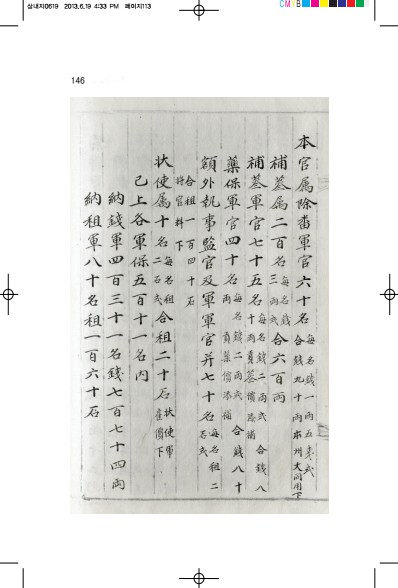 삼내지0619 2013.6.19 4:33 PM 페이지113
CM B
146
本官属除番軍官六十名 每名錢一両五戔式 合錢九十両本州大同用下
補墓属二百名 每名錢三両式 合六百両
補墓軍官七十五名 每名錢二両式 合錢八十両賣墓價添補
藥保軍官四十名 每名錢二両式 合錢八十両 貿藥價添補
額外執事監官及軍軍官并七十名 每名租二石式
合租一百四十石 将官料下
状使属十名 每名租二石式 合租二十石 状使軍在價下
已上各軍保五百十一名內
納錢軍四百三十一名錢七百七十四両
納租軍八十名租一百六十石